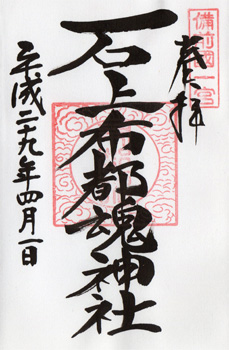 備前國一宮
奉拝
石上布都魂神社
平成二十九年四月一日